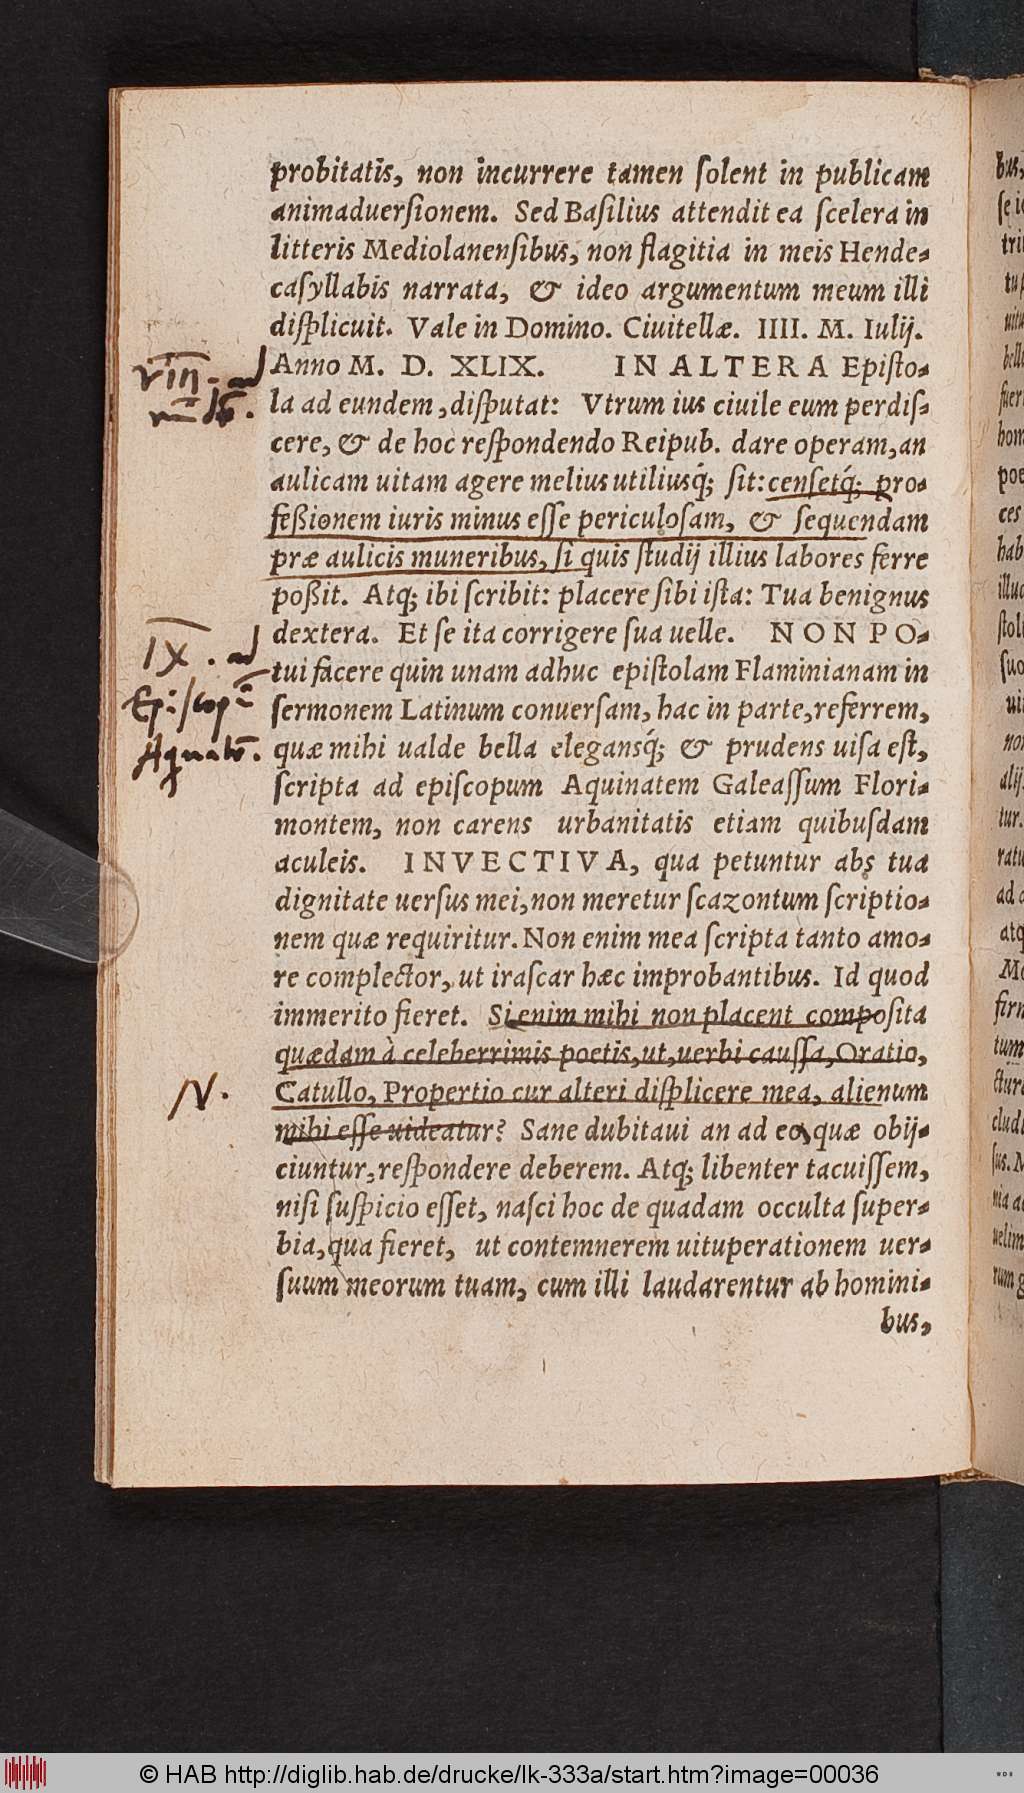 probitatis, non incurrere tamen ſolent in publicam
animaduerſionem. Sed Baſilius attendit ea ſcelera in
litteris Mediolanenſibus, non flagitia in meis Hende-
caſyllabis narrata, & ideo argumentum meum illi
diſplicuit. Vale in Domino. Ciuitellæ. IIII. M. Iulij.
Anno M. D. XLIX. IN ALTERA Epiſto-
la ad eundem, diſputat: Vtrum ius ciuile eum perdiſ-
cere, & de hoc reſpondendo Reipub. dare operam, an
aulicam uitam agere melius utiliusq́; ſit: cenſetq́; pro-
feßionem iuris minus eſſe periculoſam, & ſequendam
præ aulicis muneribus, ſi quis ſtudij illius labores ferre
poßit. Atq; ibi ſcribit: placere ſibi iſta: Tua benignus
dextera. Et ſe ita corrigere ſua uelle. NON PO-
tui facere quin unam adhuc epiſtolam Flaminianam in
ſermonem Latinum conuerſam, hac in parte, referrem,
quæ mihi ualde bella elegansq́; & prudens uiſa eſt,
ſcripta ad epiſcopum Aquinatem Galeaſſum Flori-
montem, non carens urbanitatis etiam quibuſdam
aculeis. INVECTIVA, qua petuntur abs tua
dignitate uerſus mei, non meretur ſcazontum ſcriptio-
nem quæ requiritur. Non enim mea ſcripta tanto amo-
re complector, ut iraſcar hæc improbantibus. Id quod
immerito fieret. Si enim mihi non placent compoſita
quædam à celeberrimis poetis, ut, uerbi cauſſa, Oratio,
Catullo, Propertio cur alteri diſplicere mea, alienum
mihi eſſe uideatur? Sane dubitaui an ad ea, quæ obij-
ciuntur, reſpondere deberem. Atq; libenter tacuiſſem,
niſi ſuſpicio eſſet, naſci hoc de quadam occulta ſuper-
bia, qua fieret, ut contemnerem uituperationem uer-
ſuum meorum tuam, cum illi laudarentur ab homini-
bus,
VIII. ad
IX. ad
Epiſcop
Aquat.
N.
© HAB http://diglib.hab.de/drucke/lk-333a/start.htm?image=00036